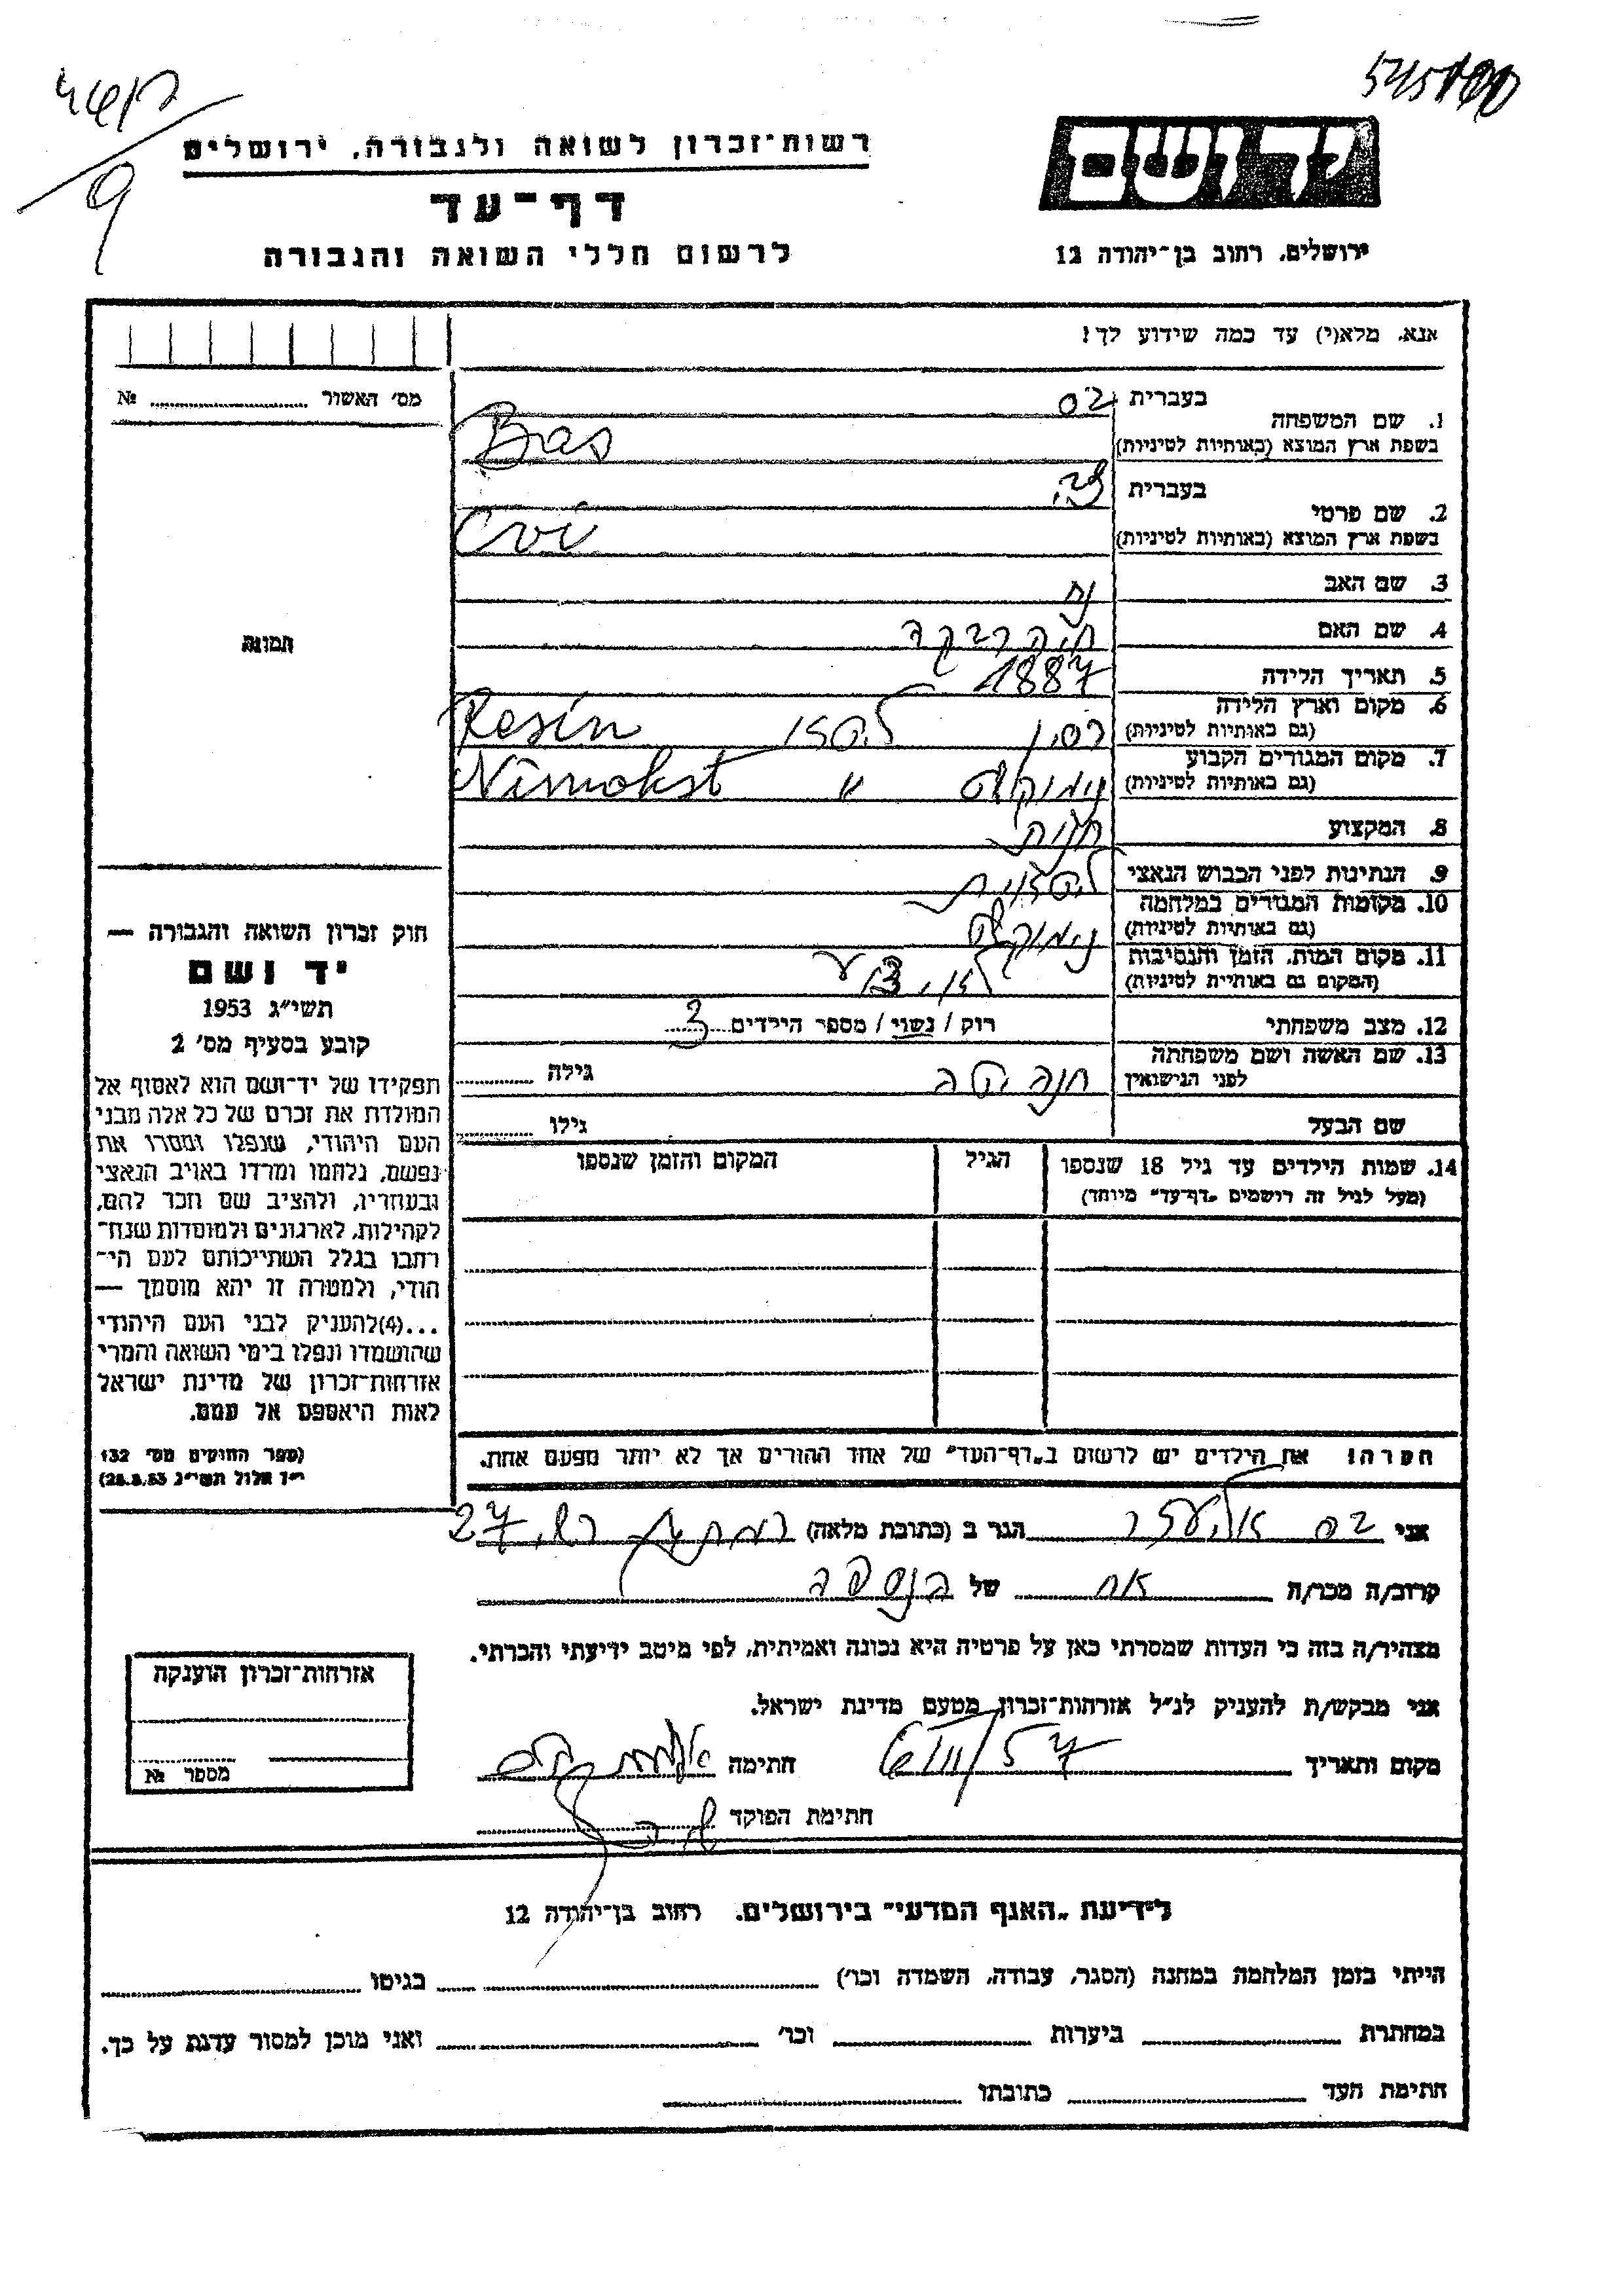 רשות־זכרון לשואה ולגבורה, ירושלים
דף־עד
לרשום חללי השואה והגבורה
יד ושם
ירושלים, רחוב בן־יהודה 12
אנא, מלא(י) עד כמה שידוע לך!
מס׳ האשור № 
1. שם המשפחה
בעברית בס
בשפת ארץ המוצא (באותיות לטיניות) Bas
2. שם פרטי
בעברית צבי
בשפת ארץ המוצא (באותיות לטיניות) Cvi
3. שם האב נח
4. שם האם חיה רבקה
5. תאריך הלידה 1887
6. מקום וארץ הלידה
(גם באותיות לטיניות) רסין ליטא Resin
7. מקום המגורים הקבוע
(גם באותיות לטיניות) נימוקשט " Nimokst
8. המקצוע חנוני
9. הנתינות לפני הכבוש הנאצי ליטאית
10. מקומות המגורים במלחמה
(גם באותיות לטיניות) נימוקשט
11. מקום המות, הזמן והנסיבות
(המקום גם באותיית לטיניות)
12. מצב משפחתי רוק / נשוי / מספר הילדים 3
13. שם האשה ושם משפחתה
לפני הנישואין חנה גילה
שם הבעל גילו
14. שמות הילדים עד גיל 18 שנספו
(מעל לגיל זה רושמים „דף־עד" מיוחד)
הגיל
המקום והזמן שנספו
הערה! את הילדים יש לרשום ב„דף־העד" של אחד ההורים אך לא יותר מפעם אחת.
תמונה
חוק זכרון השואה והגבורה —
יד ושם
תשי״ג 1953
קובע בסעיף מס׳ 2
תפקידו של יד־ושם הוא לאסוף אל
המולדת את זכרם של כל אלה מבני
העם היהודי, שנפלו ומסרו את
נפשם, נלחמו ומרדו באויב הנאצי
ובעוזריו, ולהציב שם וזכר להם,
לקהילות, לארגונים ולמוסדות שנח־
רבו בגלל השתייכותם לעם הי־
הודי, ולמטרה זו יהא מוסמך —
...(4)להעניק לבני העם היהודי
שהושמדו ונפלו בימי השואה והמרי
אזרחות־זכרון של מדינת ישראל
לאות היאספם אל עמם.
(ספר החוקים מס׳ 132
י״ז אלול תשי״ג 28.8.53)
אני בס אליעזר הגר ב (כתובת מלאה) רמת גן 27
קרוב/ה מכר/ה אח של הנספה
מצהיר/ה בזה כי העדות שמסרתי כאן על פרטיה היא נכונה ואמיתית, לפי מיטב ידיעתי והכרתי.
אני מבקש/ת להעניק לנ״ל אזרחות־זכרון מטעם מדינת ישראל.
מקום ותאריך חתימה
חתימת הפוקד
אזרחות־זכרון הוענקה
מספר №
לידיעת „האגף המדעי" בירושלים, רחוב בן־יהודה 12
הייתי בזמן המלחמה במחנה (הסגר, עבודה, השמדה וכו׳) בגיטו
במחתרת ביערות וכו׳ ואני מוכן למסור עדות על כך.
חתימת העד כתובתו